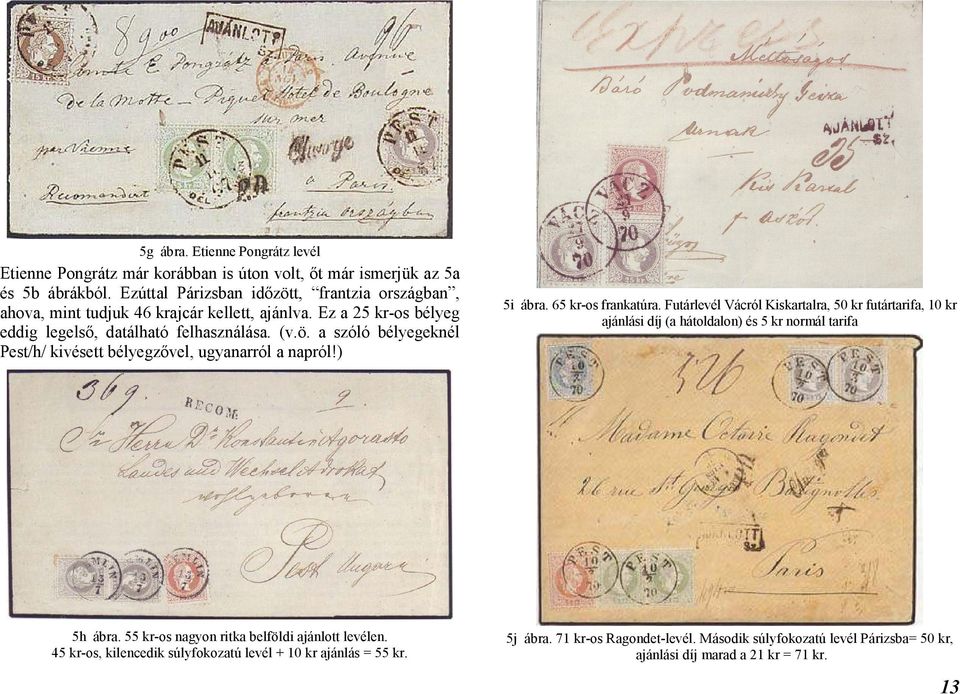 PEST
8900
AJÁNLOTT
SZ.
96
Comte E Pongrátz à Paris Avenue
De la Motte – Piquet Hotel de Boulogne
sur mer
par Vienne
Charge
PEST
11
PEST
11
DÉL
P.D.
Recomandirt
a Paris
frantzia országban
5g ábra. Etienne Pongrátz levél
Etienne Pongrátz már korábban is úton volt, őt már ismerjük az 5a
és 5b ábrákból. Ezúttal Párizsban időzött, “frantzia országban”,
ahova, mint tudjuk 46 krajcár kellett, ajánlva. Ez a 25 kr-os bélyeg
eddig legelső, datálható felhasználása. (v.ö. a szóló bélyegeknél
Pest/h/ kivésett bélyegzővel, ugyanarról a napról!)
369.
RECOM:
2.
Herrn Dr Konstantin Agorasto
Landes und Wechsel Advokat
wohlgeboren
Pest Ungarn
SEMLIN
13
7
SEMLIN
13
7
SEMLIN
13
7
5h ábra. 55 kr-os nagyon ritka belföldi ajánlott levélen.
45 kr-os, kilencedik súlyfokozatú levél + 10 kr ajánlás = 55 kr.
Express
Méltóságos
Báró Podmaniczky Geiza
Urnak
AJÁNLOTT
SZ.
35
Kis Kartal
VÁCZ
27
9
70
VÁCZ
9
70
5i ábra. 65 kr-os frankatúra. Futárlevél Vácról Kiskartalra, 50 kr futártarifa, 10 kr
ajánlási díj (a hátoldalon) és 5 kr normál tarifa
PEST
10
2
70
526
PEST
10
70
PEST
10
2
70
Madame Octavie Ragondet
26 rue St Georges Batignolles
AJÁNLOTT
SZ.
Paris
PEST
10
70
PEST
10
2
70
5j ábra. 71 kr-os Ragondet-levél. Második súlyfokozatú levél Párizsba= 50 kr,
ajánlási díj marad a 21 kr = 71 kr.
13